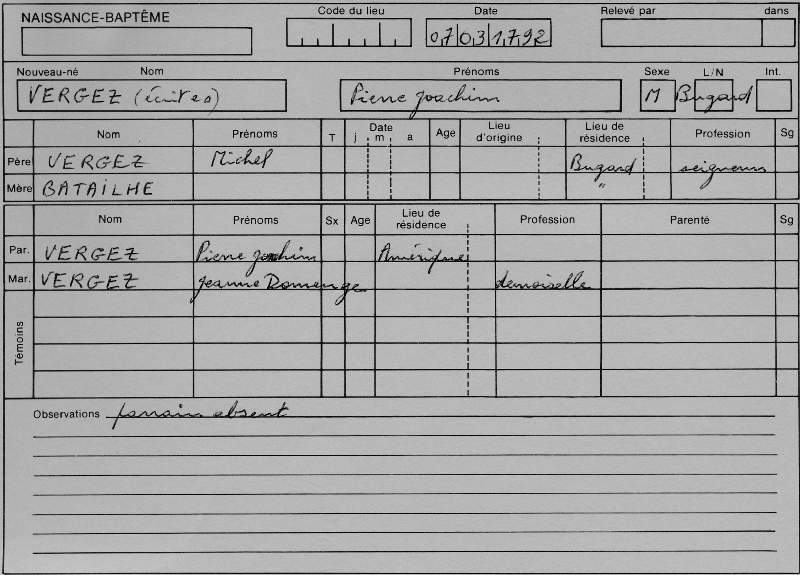 NAISSANCE-BAPTÊME Code du lieu Date Relevé par dans
07031792
Nouveau-né Nom Prénoms Sexe L/N Int.
VERGEZ (écrites) Pierre Joachim M Bugard
Nom Prénoms T Date j m a Age Lieu d'origine Lieu de résidence Profession Sg
Père VERGEZ Michel Bugard seigneur
Mère BATAILHE "
Nom Prénoms Sx Age Lieu de résidence Profession Parenté Sg
Par. VERGEZ Pierre Joachim Amérique
Mar. VERGEZ Jeanne Domenge demoiselle
Témoins
Observations parrain absent